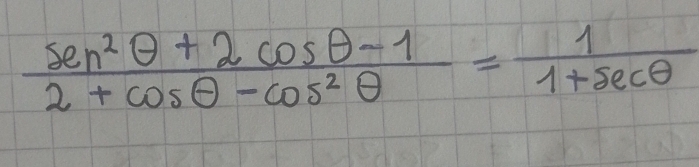 sen² θ + 2 cos θ - 1 / 2 + cos θ - cos² θ = 1 / 1 + sec θ